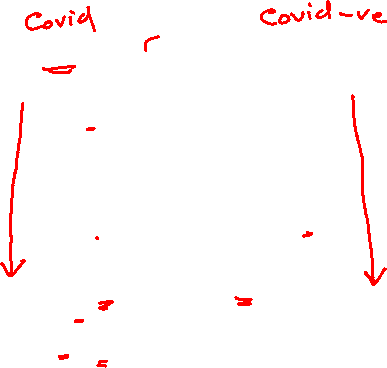 Covid
Covid-ve